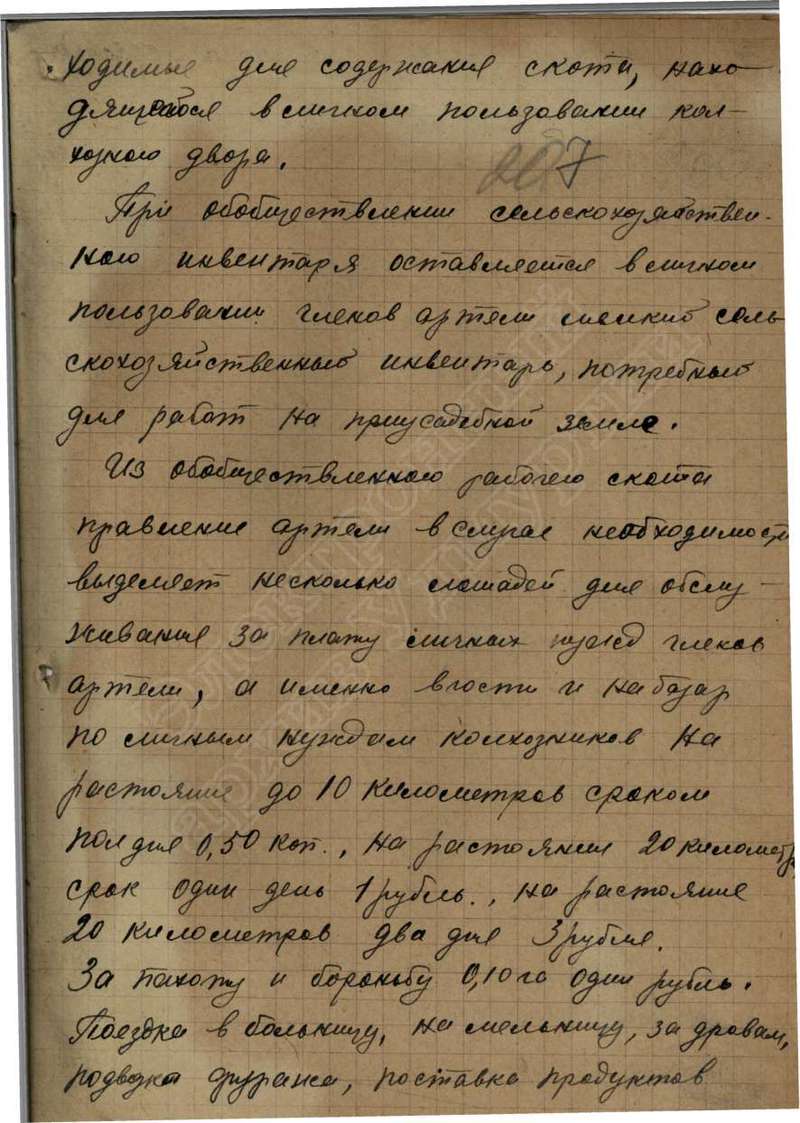 ходимые для содержания скота, нахо-
дящегося в личном пользовании кол-
хозного двора.
7
При обобществлении сельскохозяйствен-
ного инвентаря оставляется в личном
пользовании членов артели мелкий сель
скохозяйственный инвентарь, потребный
для работ на приусадебной земле.
Из обобществленного рабочего скота
правление артели в случае необходимости
выделяет несколько лошадей для обслу-
живания за плату личных нужд членов
артели, а именно в гости и на базар
по личным нуждам колхозников на
растояние до 10 километров сроком
пол дня 0,50 коп., на растоянии 20 километр
срок один день 1 рубль., на растояние
20 километров два дня 3 рубля.
За пахоту и бороньбу 0,10 га один рубль.
Поездка в больницу, на мельницу, за дровам,
подвозка фуража, поставка продуктов